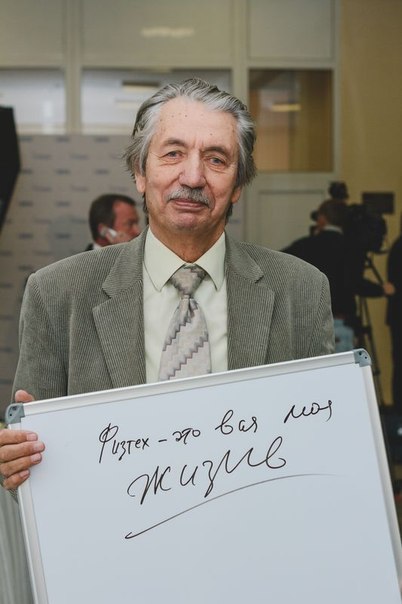 Физтех - это вся моя
жизнь